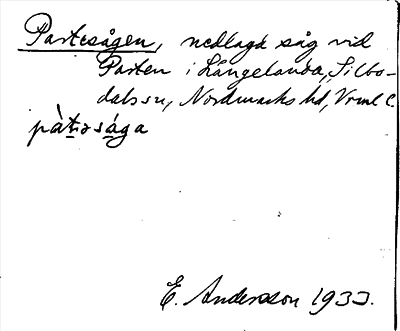 Partesågen, nedlagd såg vid
Parten i Långelanda, Silbo-
dals sn, Nordmarks hd, Vrml l.
pàṯəsága
E. Andersson 1933.